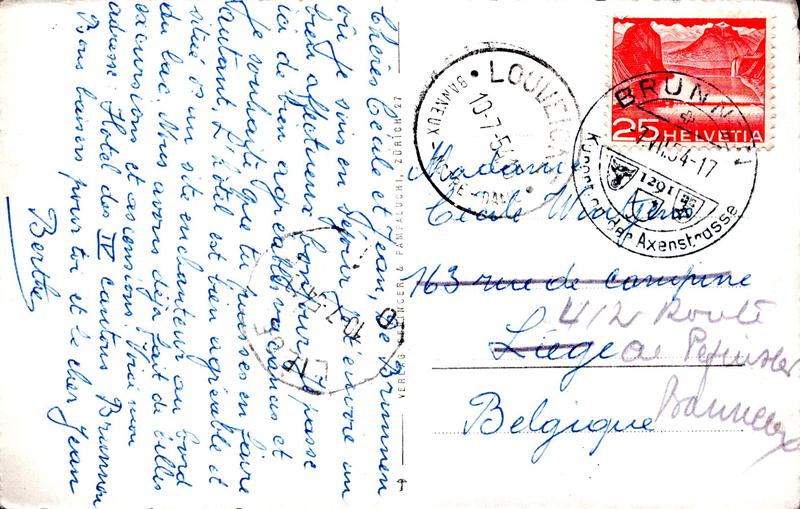 Chères Cécile et Jean, De Brunnen
où je suis en séjour je t'envoie un
bien affectueux bonjour. Je passe
ici de bien agréables vacances et
je souhaite que tu puisses en faire
autant. L'hôtel est bien agréable et
situé ds un site enchanteur au bord
du lac. Nous avons déjà fait de belles
excursions et ascensions. Voici mon
adresse: Hôtel des IV cantons Brunnen
Bons baisers pour toi et le cher Jean
Berthe
VERLAG & PAMPALUCHI, ZÜRICH 27
LIÈGE
10-7-54
LOUVEIGNÉ
10-7-54
BANNEUX - NOTRE-DAME
BRUNNEN
VII.54-17
1291
Künstler der Axenstrasse
25 HELVETIA
Madame
Cécile
163 rue de campine
412 Route
Liège de Pepinster
Banneux
Belgique